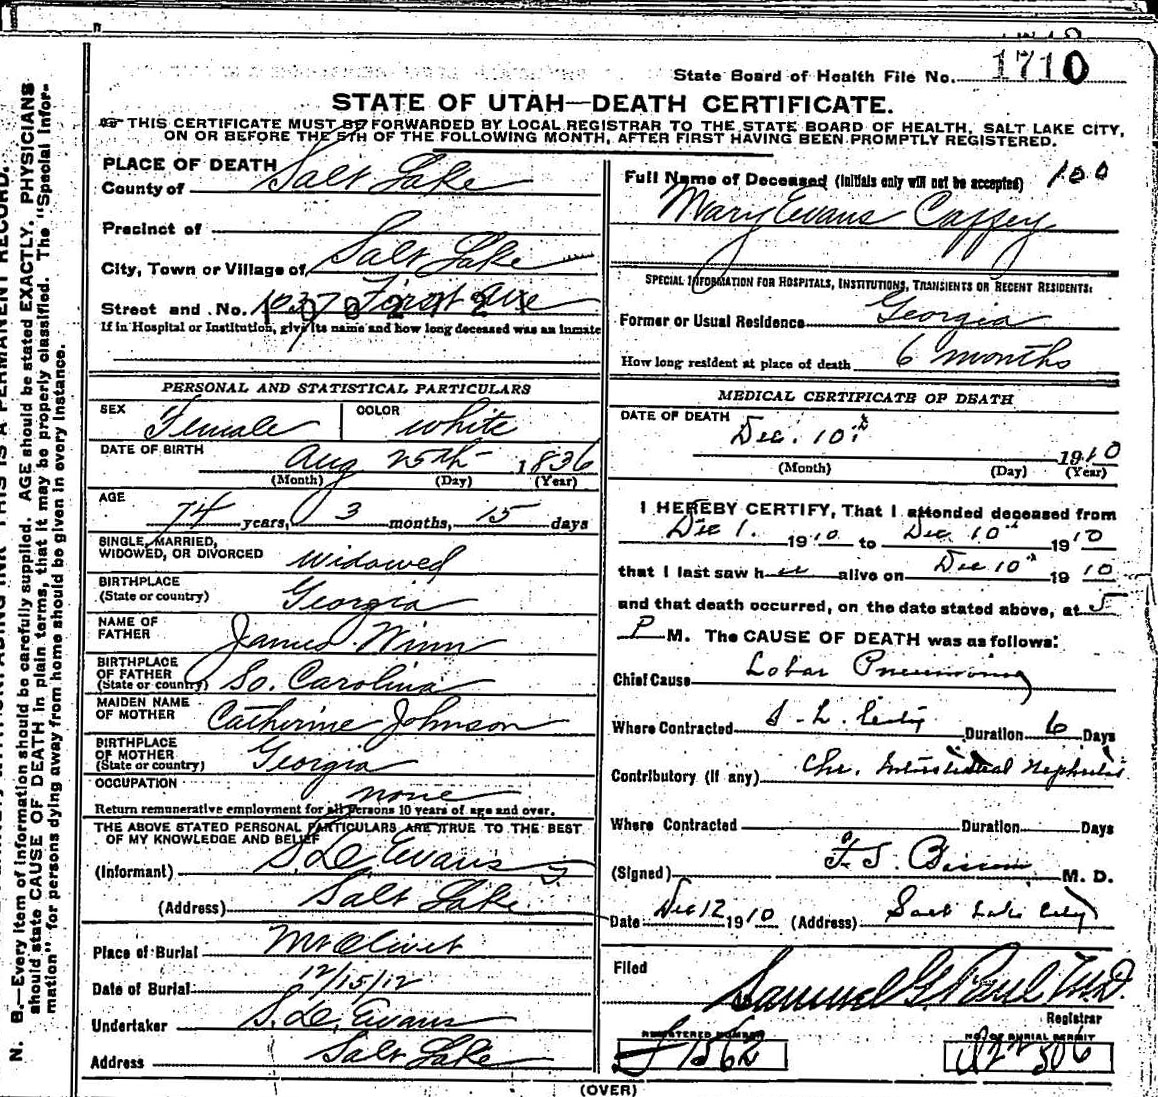 State Board of Health File No. 1710
STATE OF UTAH—DEATH CERTIFICATE.
THIS CERTIFICATE MUST BE FORWARDED BY LOCAL REGISTRAR TO THE STATE BOARD OF HEALTH, SALT LAKE CITY,
ON OR BEFORE THE 5TH OF THE FOLLOWING MONTH, AFTER FIRST HAVING BEEN PROMPTLY REGISTERED.
PLACE OF DEATH
County of Salt Lake
Precinct of
City, Town or Village of Salt Lake
Street and No. 1037 First Ave
If in Hospital or Institution, give its name and how long deceased was an inmate
PERSONAL AND STATISTICAL PARTICULARS
SEX Female COLOR White
DATE OF BIRTH Aug 25th 1836
(Month) (Day) (Year)
AGE 74 years, 3 months, 15 days
SINGLE, MARRIED,
WIDOWED, OR DIVORCED Widowed
BIRTHPLACE
(State or country) Georgia
NAME OF
FATHER James Winn
BIRTHPLACE
OF FATHER
(State or country) So. Carolina
MAIDEN NAME
OF MOTHER Catherine Johnson
BIRTHPLACE
OF MOTHER
(State or country) Georgia
OCCUPATION none
Return remunerative employment for all persons 10 years of age and over.
THE ABOVE STATED PERSONAL PARTICULARS ARE TRUE TO THE BEST
OF MY KNOWLEDGE AND BELIEF
(Informant) S. D. Evans
(Address) Salt Lake
Place of Burial Mt Olivet
Date of Burial 12/15/12
Undertaker S. D. Evans
Address Salt Lake
Full Name of Deceased (Initials only will not be accepted) 100
Mary Evans Caffey
SPECIAL INFORMATION FOR HOSPITALS, INSTITUTIONS, TRANSIENTS OR RECENT RESIDENTS:
Former or Usual Residence Georgia
How long resident at place of death 6 months
MEDICAL CERTIFICATE OF DEATH
DATE OF DEATH
Dec. 10th 1910
(Month) (Day) (Year)
I HEREBY CERTIFY, That I attended deceased from
Dec 1. 1910 to Dec 10th 1910
that I last saw her alive on Dec 10th 1910
and that death occurred, on the date stated above, at 5
P M. The CAUSE OF DEATH was as follows:
Chief Cause Lobar Pneumonia
Where Contracted S. L. City Duration 6 Days
Contributory (if any) Chr. Interstitial Nephritis
Where Contracted Duration Days
(Signed) M. D.
Date Dec 12 1910 (Address) Salt Lake City
Filed
Samuel G. Paul M.D.
Registrar
REGISTERED NUMBER
1562
NO. OF BURIAL PERMIT
(OVER)
N. B.—Every item of information should be carefully supplied. AGE should be stated EXACTLY. PHYSICIANS
should state CAUSE OF DEATH in plain terms, that it may be properly classified. The "Special Infor-
mation" for persons dying away from home should be given in every instance.
THIS IS A PERMANENT RECORD.